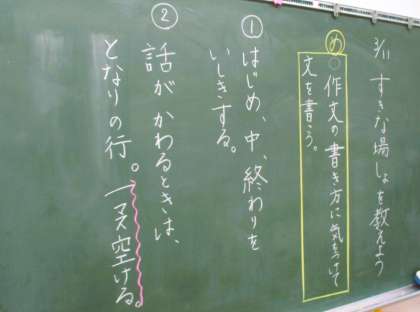 3/11 すきな場しょを教えよう
め 作文の書き方に気をつけて
文を書こう。
① はじめ、中、終わりを
いしきする。
② 話がかわるときは、
となりの行。一マス空ける。